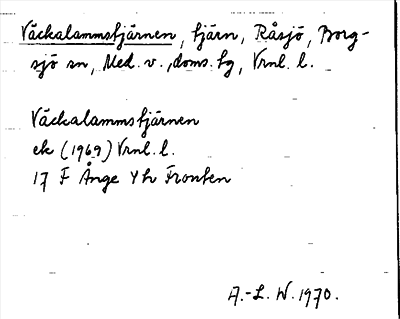 Väckalammstjärnen, tjärn, Råsjö, Borg-
sjö sn, Med. v., doms. fg, Vrnl. l.
Väckalammstjärnen
ek (1969) Vrnl. l.
17 F Ånge Yh Fronten
A.-L. W. 1970.